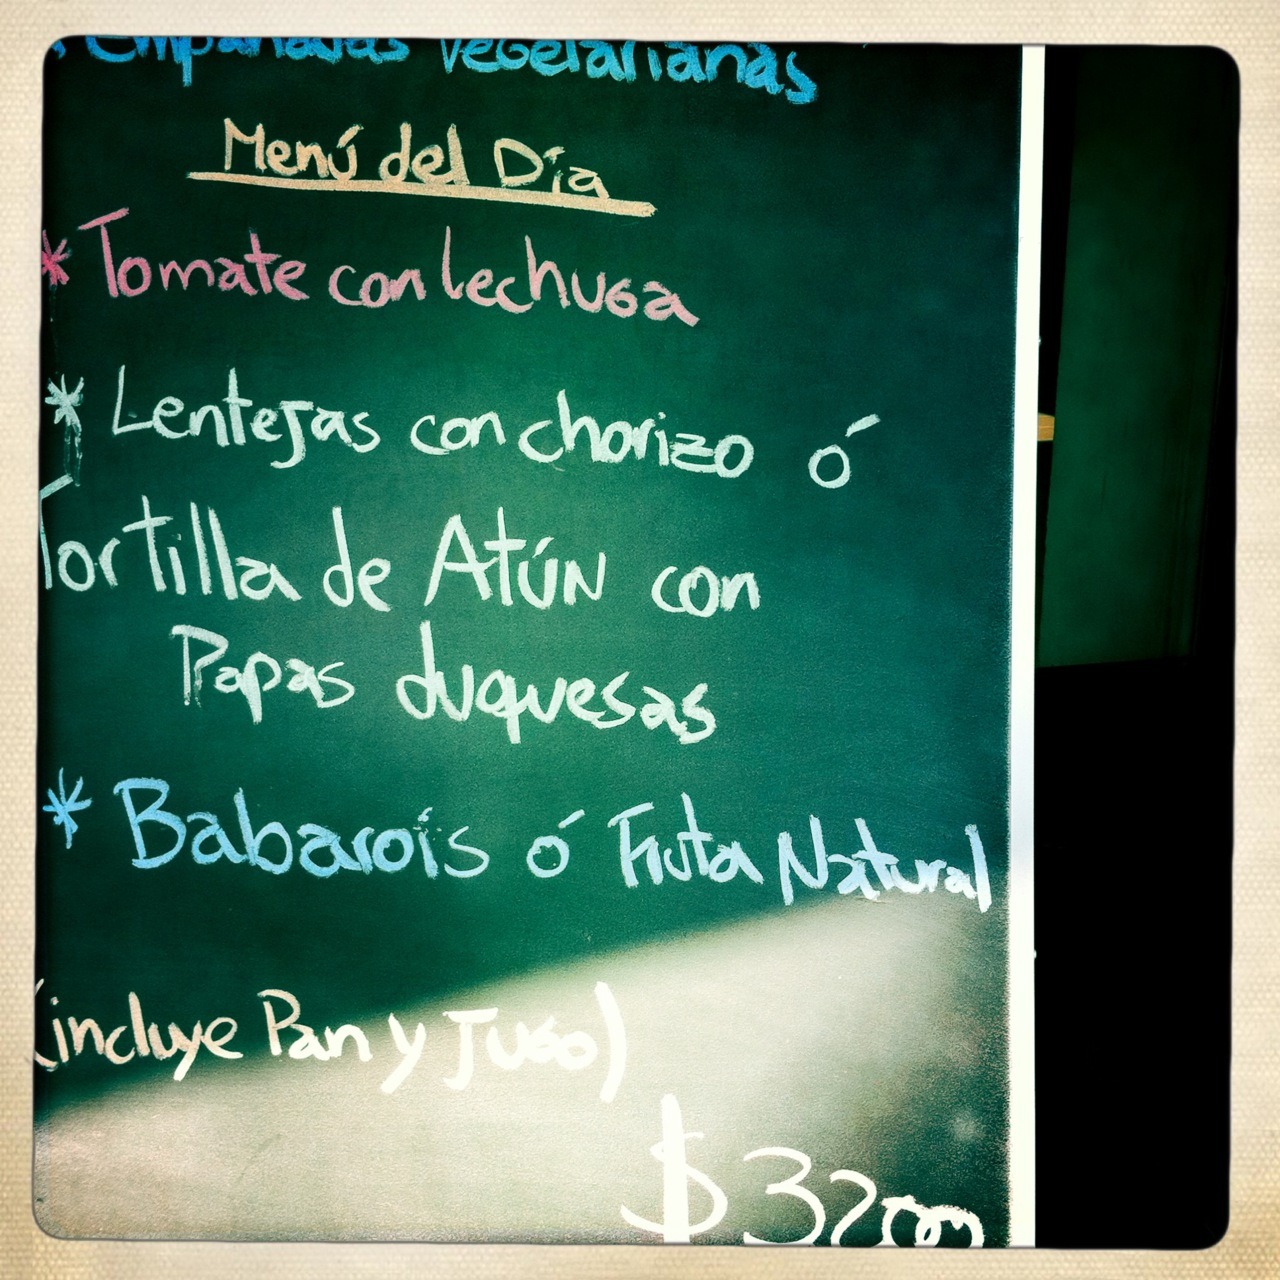 * Empanadas Vegetarianas
Menú del Día
* Tomate con lechuga
* Lentejas con chorizo ó
Tortilla de Atún con
Papas duquesas
* Babarois ó Fruta Natural
(incluye Pan y Jugo)
$3200